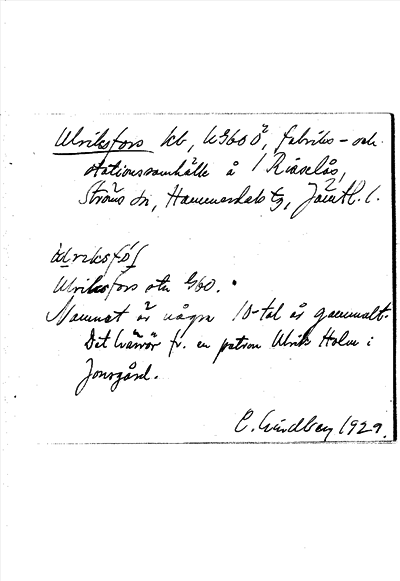 Ulriksfors kb, G60 Ö, fabriks- och
stationssamhälle å 1 Risselås,
Ströms sn, Hammerdals tg, Jämtl. l.
Ulriksfors stn G60.
Namnet är några 10-tal år gammalt.
Det härrör fr. en patron Ulrik Holm i
Jonsgård.
C. Lindberg 1929.